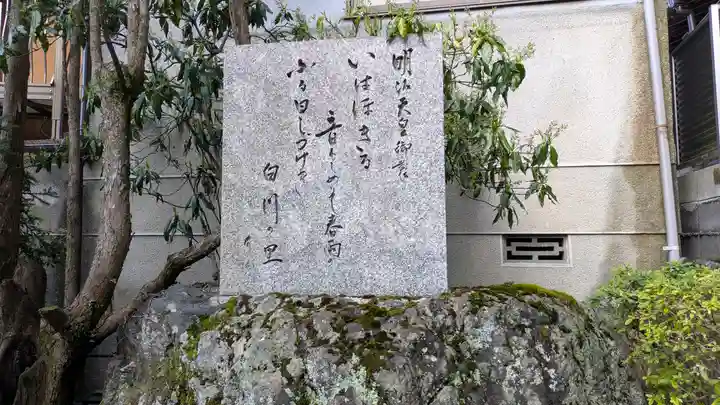 明治天皇御製
いはほきる
音もしめりて春雨の
ふる日しづけき
白川の里